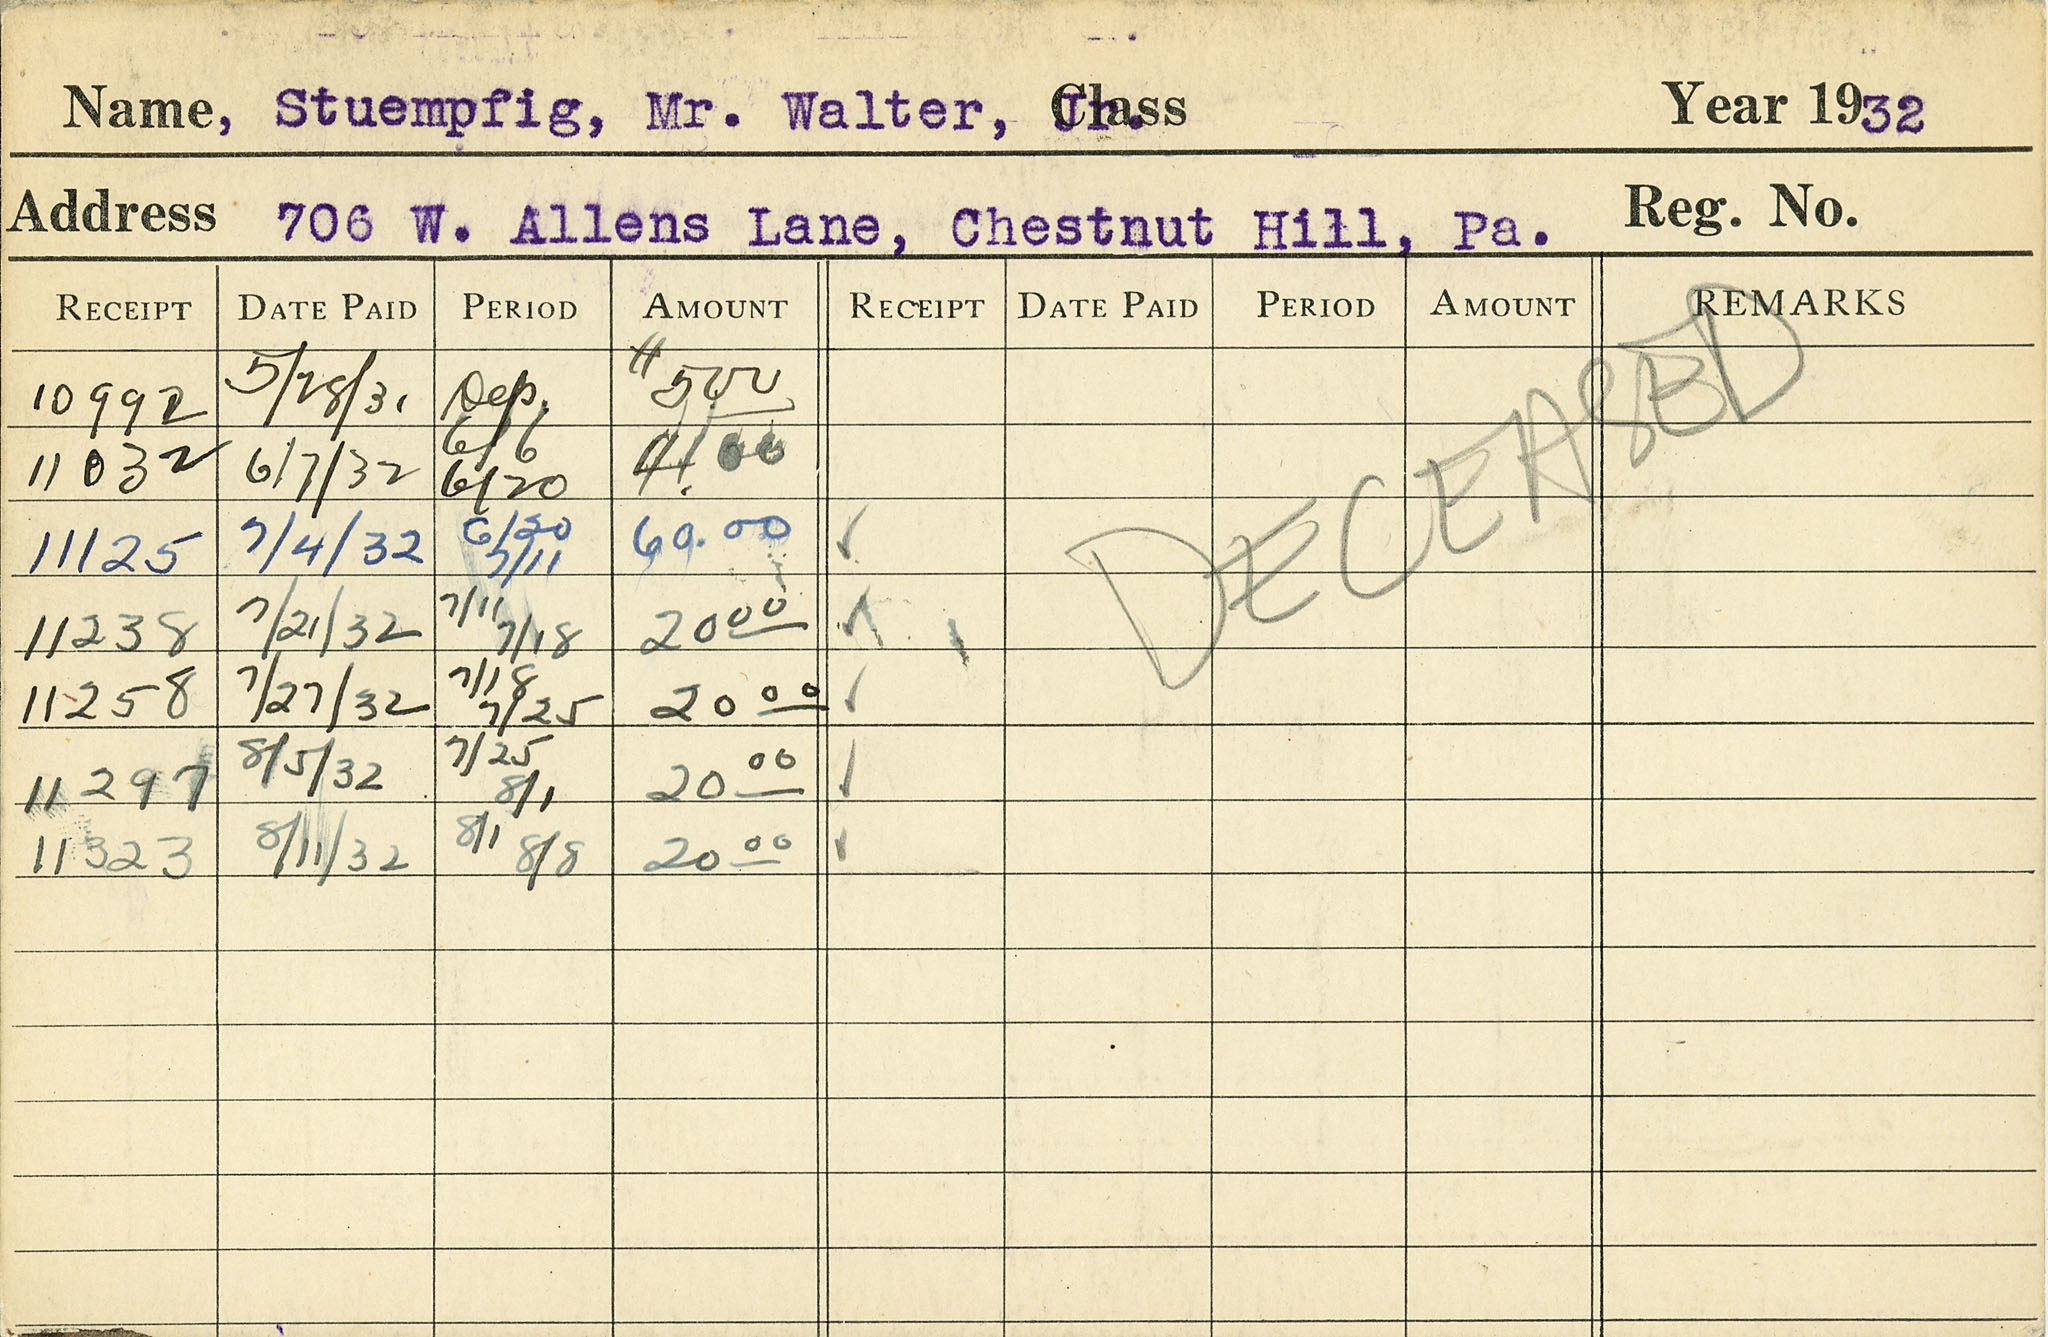 Name, Stuempfig, Mr. Walter, Jr. Class Year 1932
Address 706 W. Allens Lane, Chestnut Hill, Pa. Reg. No.
RECEIPT DATE PAID PERIOD AMOUNT RECEIPT DATE PAID PERIOD AMOUNT REMARKS
10992 5/28/31 Dep. $500
11032 6/7/32 6/6 6/20 41.00
11125 7/4/32 6/20 7/11 60.00 ✓
11238 7/21/32 7/11 7/18 20 00 ✓
11258 7/27/32 7/18 7/25 20 00 ✓
11297 8/5/32 7/25 8/1 20 00 ✓
11323 8/11/32 8/1 8/8 20 00 ✓
DECEASED